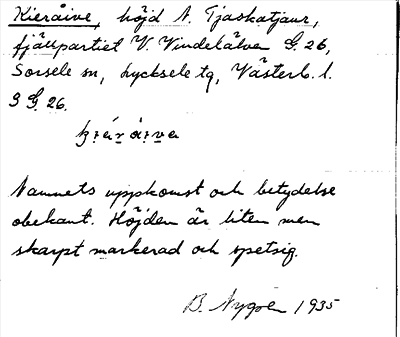 Kieråive, höjd N. Tjaskatjaur,
fjällpartiet V. Vindelälven G. 26,
Sorsele sn, Lycksele tg, Västerb. l.
S G. 26.
Namnets uppkomst och betydelse
obekant. Höjden är liten men
skarpt markerad och spetsig.
B. Nygren 1935